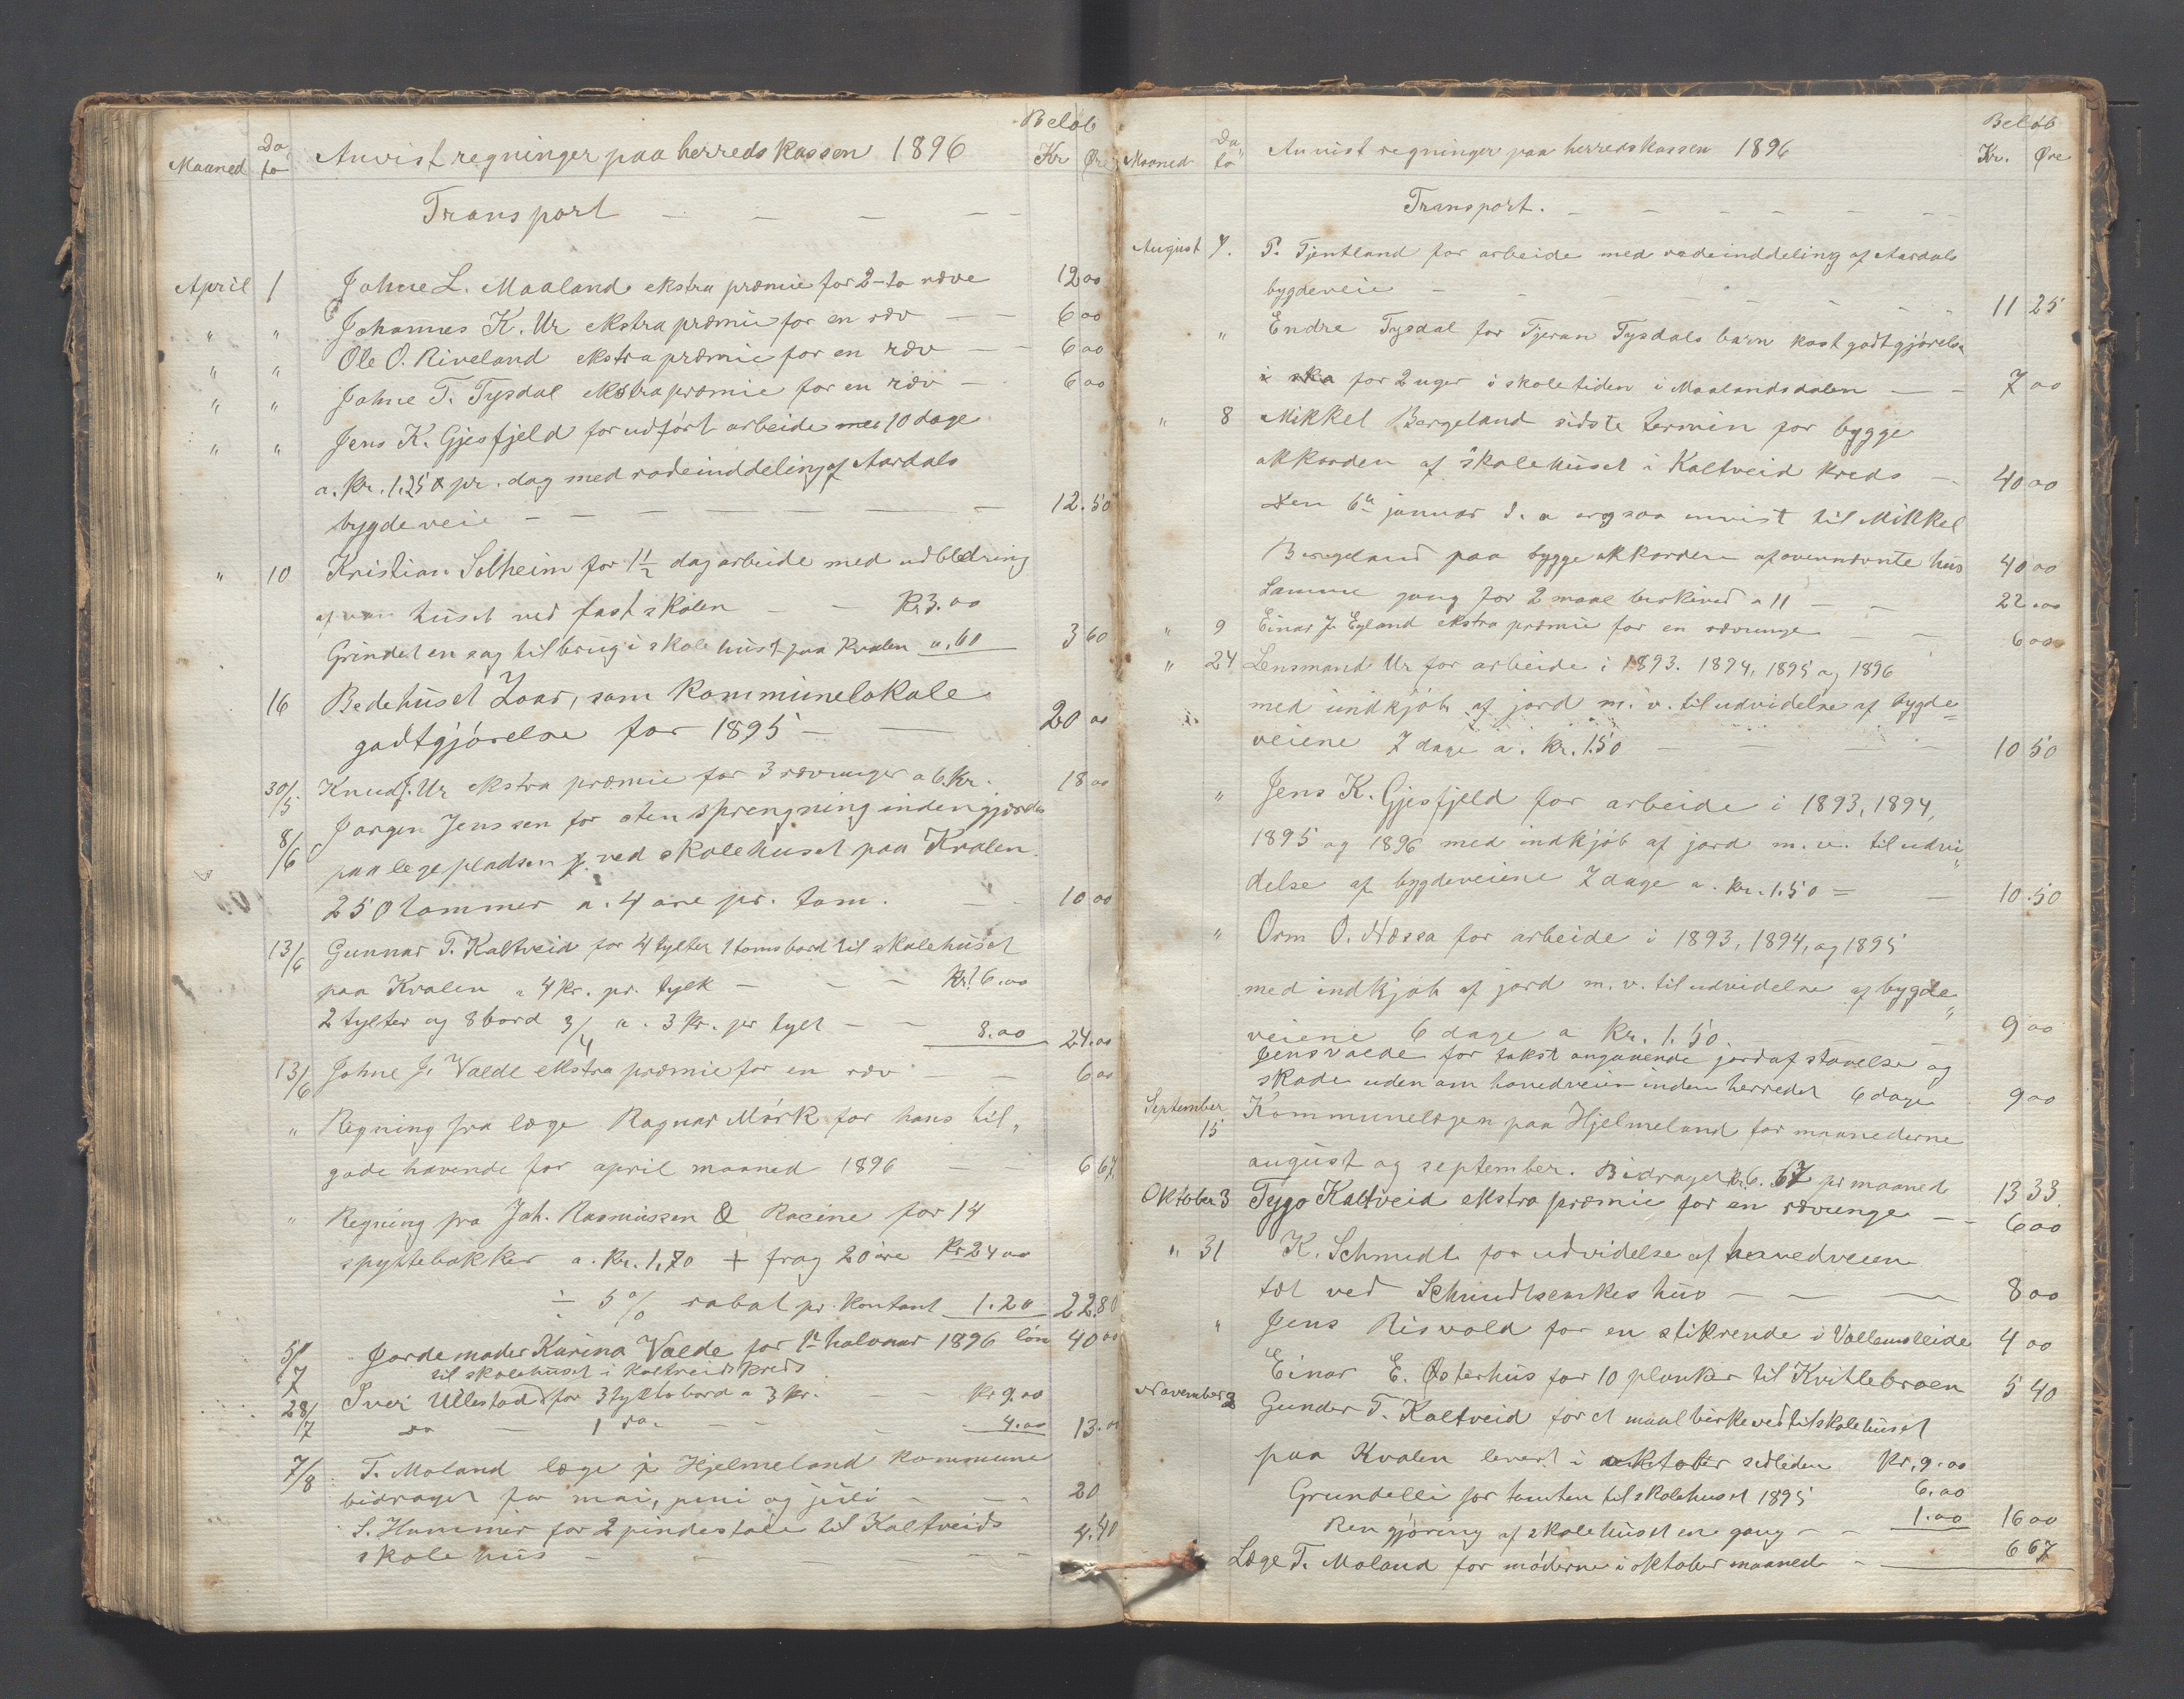 Beløb
Maaned Da to Anvist regninger paa herredskassen 1896 Kr Øre
Transport — — — — —
April 1 Johne L. Maaland ekstra præmie for 2-to ræve 12 00
" " Johannes K. Ur ekstra præmie for en ræv — — 6 00
" " Ole O. Riveland ekstra præmie for en ræv — — 6 00
" " Johne T. Tysdal ekstra præmie for en ræv — 6 00
" " Jens K. Gjesfjeld for udført arbeide 10 dage
a. Kr. 1.25 pr. dag med rodeinddeling af Aardals
bygdeveie — — — — — — — 12.50
" 10 Kristian Solheim for 1 1/2 dag arbeide med udbedring
af huset ved fastskolen — — Kr 3.00
Grindet en sag til brug i skolehuset paa Kvalen ". 60 3 60
16 Bedehuset Zoar, som kommunelokale
godtgjørelse for 1895 — — 20 00
30/5 Knud J. Ur ekstra præmie for 3 ræveunger a 6 Kr. 18 00
8/6 Jørgen Jenssen for stensprengning indengjærdes
paa legepladsen ved skolehuset paa Kvalen
250 tommer a. 4 øre pr. tom. — — 10 00
13/6 Gunnar T. Kaltveid for 4 tylter 1 toms bord til skolehuset
paa Kvalen a 4 Kr. pr. tylt — — — Kr. 16.00
2 tylter og 8 bord 3/4 a. 3 Kr. pr tylt — — 8.00 24.00
13/6 Johne J. Valde ekstra præmie for en ræv — — 6 00
" Regning fra læge Ragnar Mørk for hans til"
gode havende for april maaned 1896 — — 6 67
" Regning fra Joh. Rasmussen & Racine for 14
spyttebakker a. Kr. 1,70 + frag 20 øre Kr 24 00
÷ 5% rabat pr. Kontant 1.20 22.80
5/7 Jordemoder Karina Valde for 1ste halvaar 1896 løn 40 00
til skolehuset i Kaltveid Kreds
28/7 Iver Ullestad for 3 tylter bord a 3 Kr. — — Kr 9.00
do — 1 do. — — — 4.00 13.00
7/8 T. Moland læge i Hjelmeland kommune
bidraget for mai, juni og juli — — 20
S. Hammer for 2 pindestole til Kaltveids 4.40
skolehus — — — —
Beløb
Maaned Da to Anvist regninger paa herredskassen 1896 Kr. Øre
Transport. — — — — — — —
August 7. T. Tjentland for arbeide med rodeinddeling af Aardals
bygdeveie — — — — — — 11 25
" Endre Tysdal for Tjeran Tysdals barn kostgodtgjørelse
for 2 uger i skoletiden i Maalandsdalen — — 7 00
" 8 Mikkel Bergeland sidste termin for bygge
akkorden af skolehuset i Kaltveid kreds — 40 00
Den 6te januar d. a ogsaa anvist til Mikkel
Bergeland paa byggeakkorden af ovennævnte hus 40 00
Samme gang for 2 maal birkeved a 11 — — 22.00
" 9 Einar J. Egland ekstra præmie for en ræveunge — — 6 00
" 24 Lensmand Ur for arbeide i 1893. 1894, 1895 og 1896
med indkjøb af jord m. v. til udvidelse af bygde=
veiene 7 dage a. Kr. 1.50 — — — — 10 50
" Jens K. Gjesfjeld for arbeide i 1893, 1894,
1895 og 1896 med indkjøb af jord m. v. til udvi"
delse af bygdeveiene 7 dage a. Kr. 1.50 = — 10.50
" Orm O. Næssa for arbeide i 1893, 1894, og 1895
med indkjøb af jord m. v. til udvidelse af bygde"
veiene 6 dage a Kr. 1.50. — — 9 00
Jens Valde for takst angaaende jordafstaaelse og
skade uden om hovedveien inden herredet 6 dage 9 00
September 15 Kommunelægen paa Hjelmeland for maanederne
august og september. Bidraget Kr. 6. 67 pr maaned 13 33
Oktober 3 Tygo Kaltveid ekstra præmie for en ræveunge — — 6 00
" 31 K. Schmidt for udvidelse af hovedveien
tæt ved Schmidtsenkes hus — — — 8 00
" Jens Risvold for en stikrende i Vallamsleide 4 00
Einar E. Østerhus for 10 planker til Kvitlebroen 5 40
November 2 Gunder T. Kaltveid for et maal birkeved til skolehuset
paa Kvalen levert i oktober sidleden Kr. 9.00
Grundleie for tomten til skolehuset 1895 6.00
Rengjøring af skolehuset en gang — — 1.00 16 00
Læge T. Moland for møderne i oktober maaned — 6 67